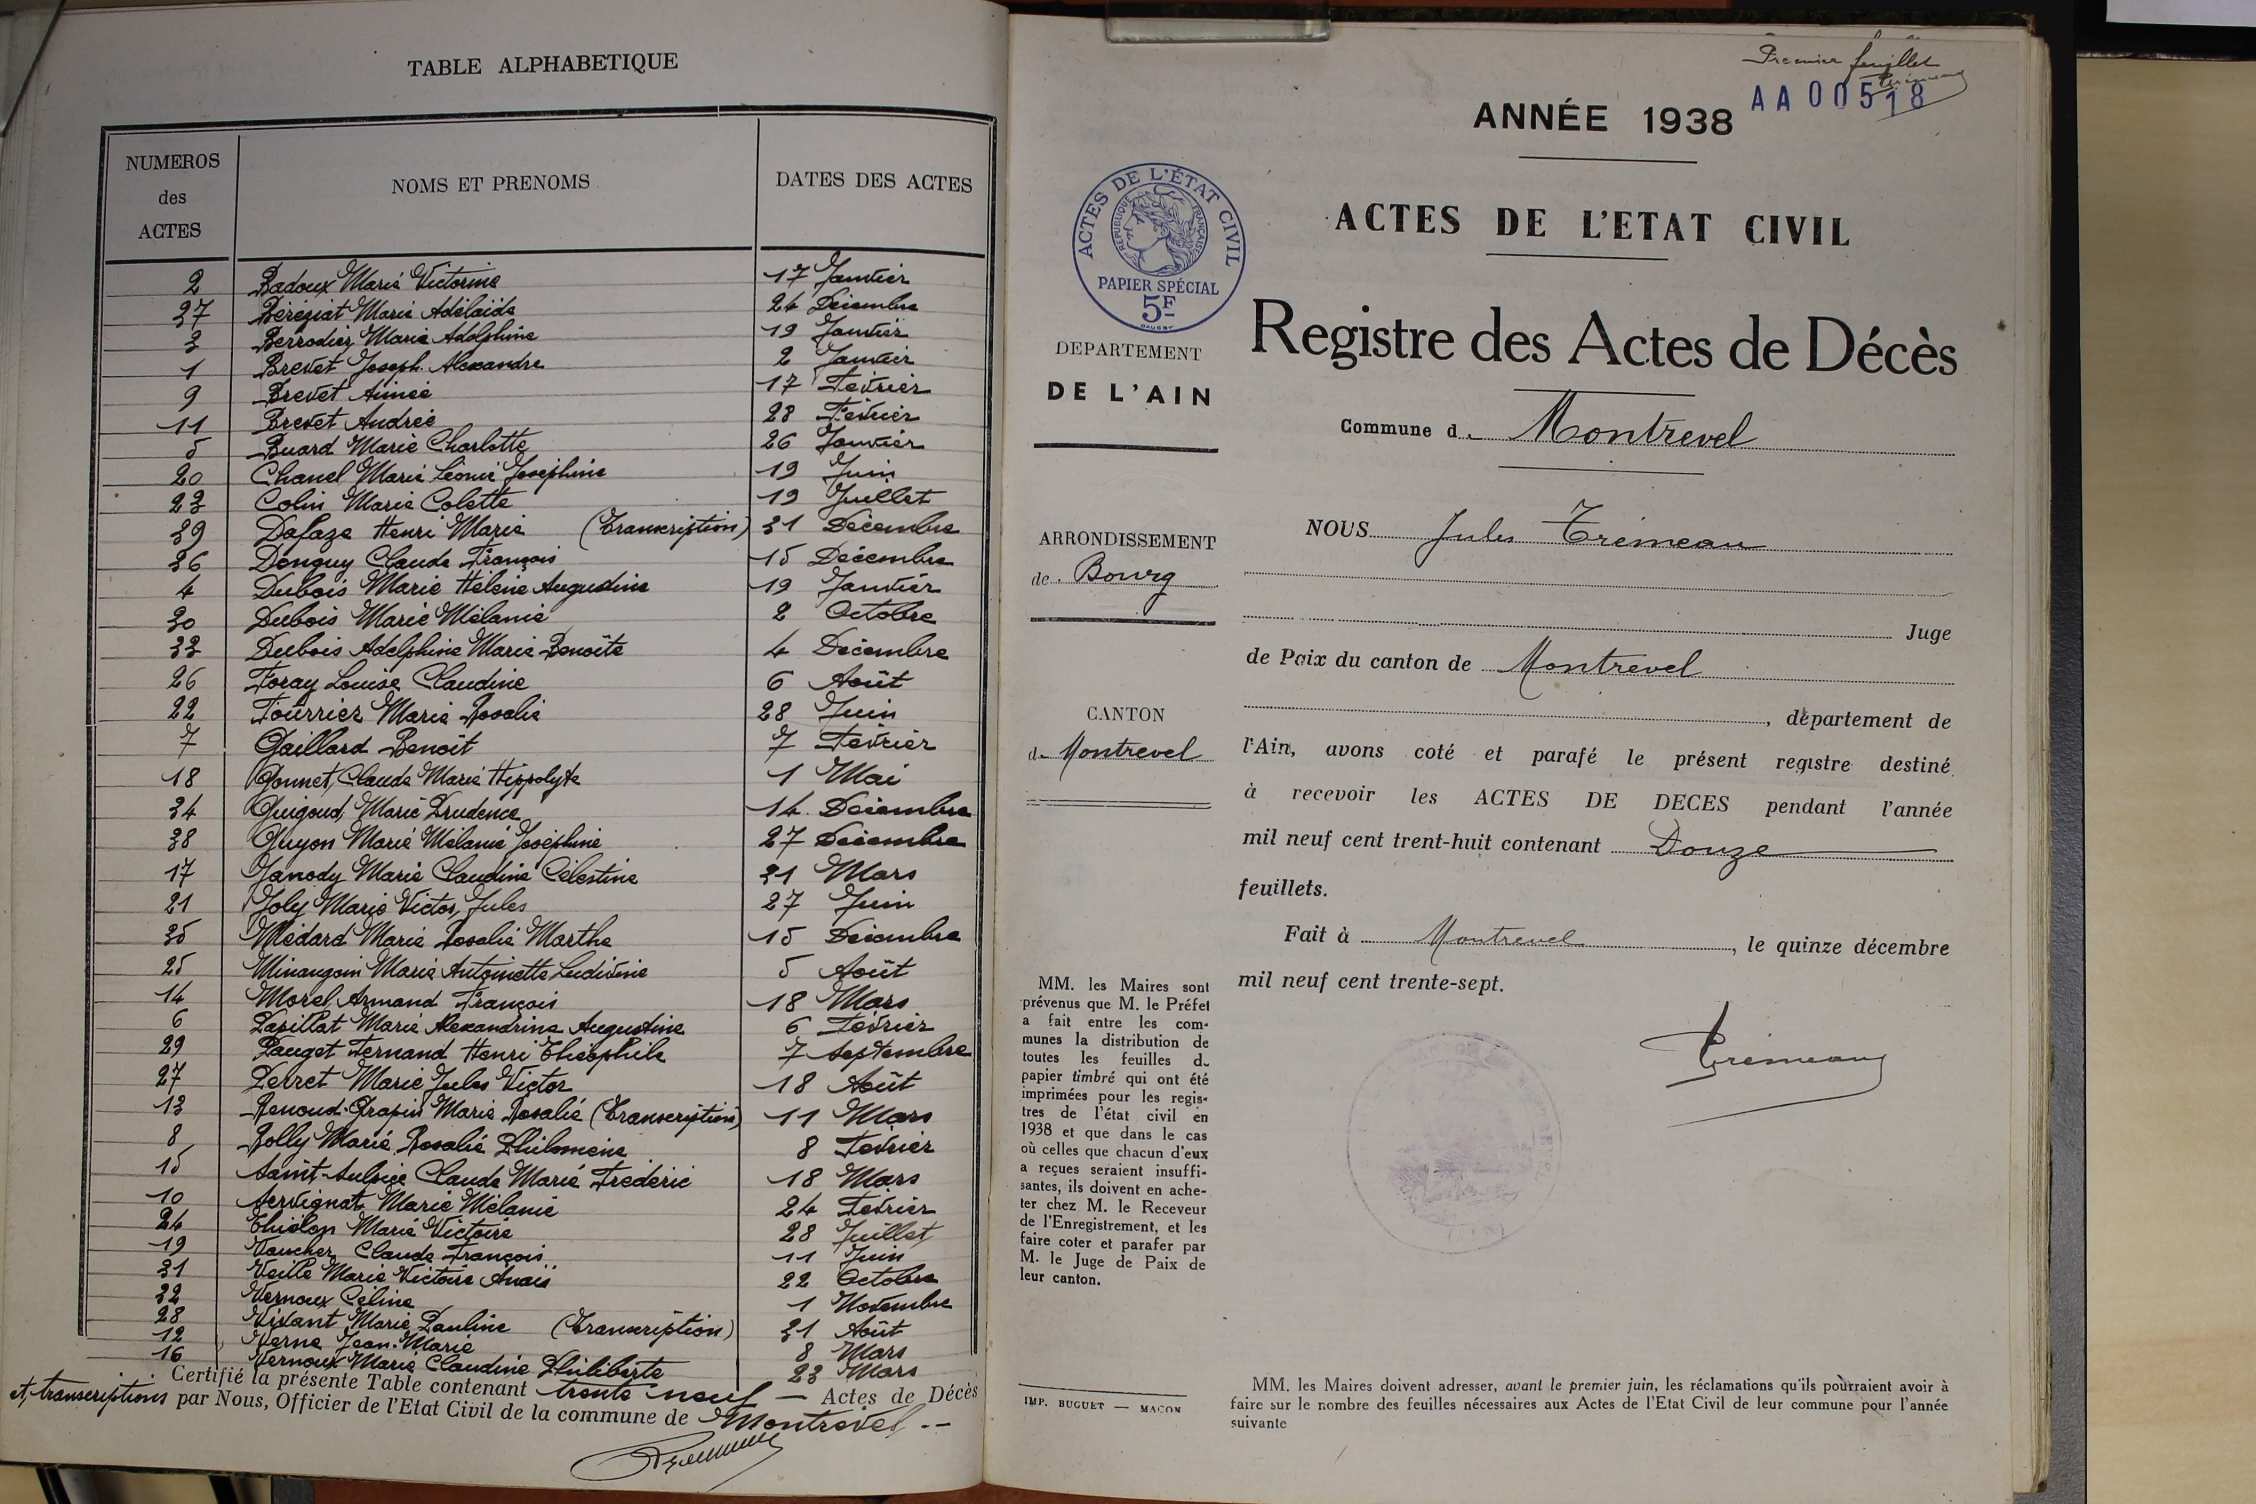 TABLE ALPHABETIQUE
NUMEROS des ACTES
NOMS ET PRENOMS
DATES DES ACTES
2 Badoux Marie Victorine 17 Janvier
37 Béréziat Marie Adélaïde 24 Décembre
3 Berrodier Marie Adolphine 19 Janvier
1 Brevet Joseph Alexandre 2 Janvier
9 Brevet Aimée 17 Février
11 Brevet Andrée 28 Février
5 Buard Marie Charlotte 26 Janvier
20 Chanel Marie Léonie Joséphine 19 Juin
23 Colin Marie Colette 19 Juillet
39 Dafaze Henri Marie (Transcription) 31 Décembre
36 Donguy Claude François 15 Décembre
4 Dubois Marie Hélène Augustine 19 Janvier
30 Dubois Marie Mélanie 2 Octobre
33 Dubois Adelphine Marie Benoîte 4 Décembre
26 Foray Louise Claudine 6 Août
22 Fourrier Marie Rosalie 28 Juin
7 Gaillard Benoît 7 Février
18 Gonnet Claude Marie Hippolyte 1 Mai
34 Guigoud Marie Prudence 14 Décembre
38 Guyon Marie Mélanie Joséphine 27 Décembre
17 Janody Marie Claudine Célestine 31 Mars
21 Joly Marie Victor Jules 27 Juin
35 Médard Marie Rosalie Marthe 15 Décembre
25 Minangoin Marie Antoinette Ludivine 5 Août
14 Morel Armand François 18 Mars
6 Papillat Marie Alexandrine Augustine 6 Février
29 Pauget Fernand Henri Théophile 7 Septembre
27 Perret Marie Jules Victor 18 Août
13 Renoud-Grapin Marie Rosalie (Transcription) 11 Mars
8 Rolly Marie Rosalie Philomène 8 Février
15 Saint-Sulpice Claude Marie Frédéric 18 Mars
10 Servignat Marie Mélanie 24 Février
24 Thiélon Marie Victoire 28 Juillet
19 Vaucher Claude François 11 Juin
31 Veille Marie Victoire Anaïs 22 Octobre
32 Vernoux Céline 1 Novembre
28 Vivant Marie Pauline (Transcription) 31 Août
12 Verne Jean-Marie 8 Mars
16 Vernoux Marie Claudine Philiberte 23 Mars
Certifié la présente Table contenant trente neuf — Actes de Décès
et transcriptions par Nous, Officier de l'Etat Civil de la commune de Montrevel --
Premier feuillet
Trémeau
AA00518
ANNÉE 1938
ACTES DE L'ÉTAT CIVIL
RÉPUBLIQUE FRANÇAISE
PAPIER SPÉCIAL
5F
ACTES DE L'ETAT CIVIL
Registre des Actes de Décès
Commune d. Montrevel
DEPARTEMENT
DE L'AIN
ARRONDISSEMENT
de Bourg
CANTON
de Montrevel
NOUS Jules Trémeau
Juge
de Paix du canton de Montrevel
, département de
l'Ain, avons coté et parafé le présent registre destiné
à recevoir les ACTES DE DECES pendant l'année
mil neuf cent trent-huit contenant Douze
feuillets.
Fait à Montrevel, le quinze décembre
mil neuf cent trente-sept.
Trémeau
MM. les Maires sont
prévenus que M. le Préfet
a fait entre les com-
munes la distribution de
toutes les feuilles de
papier timbré qui ont été
imprimées pour les regis-
tres de l'état civil en
1938 et que dans le cas
où celles que chacun d'eux
a reçues seraient insuffi-
santes, ils doivent en ache-
ter chez M. le Receveur
de l'Enregistrement, et les
faire coter et parafer par
M. le Juge de Paix de
leur canton.
IMP. BUGUET — MACON
MM. les Maires doivent adresser, avant le premier juin, les réclamations qu'ils pourraient avoir à
faire sur le nombre des feuilles nécessaires aux Actes de l'Etat Civil de leur commune pour l'année
suivante